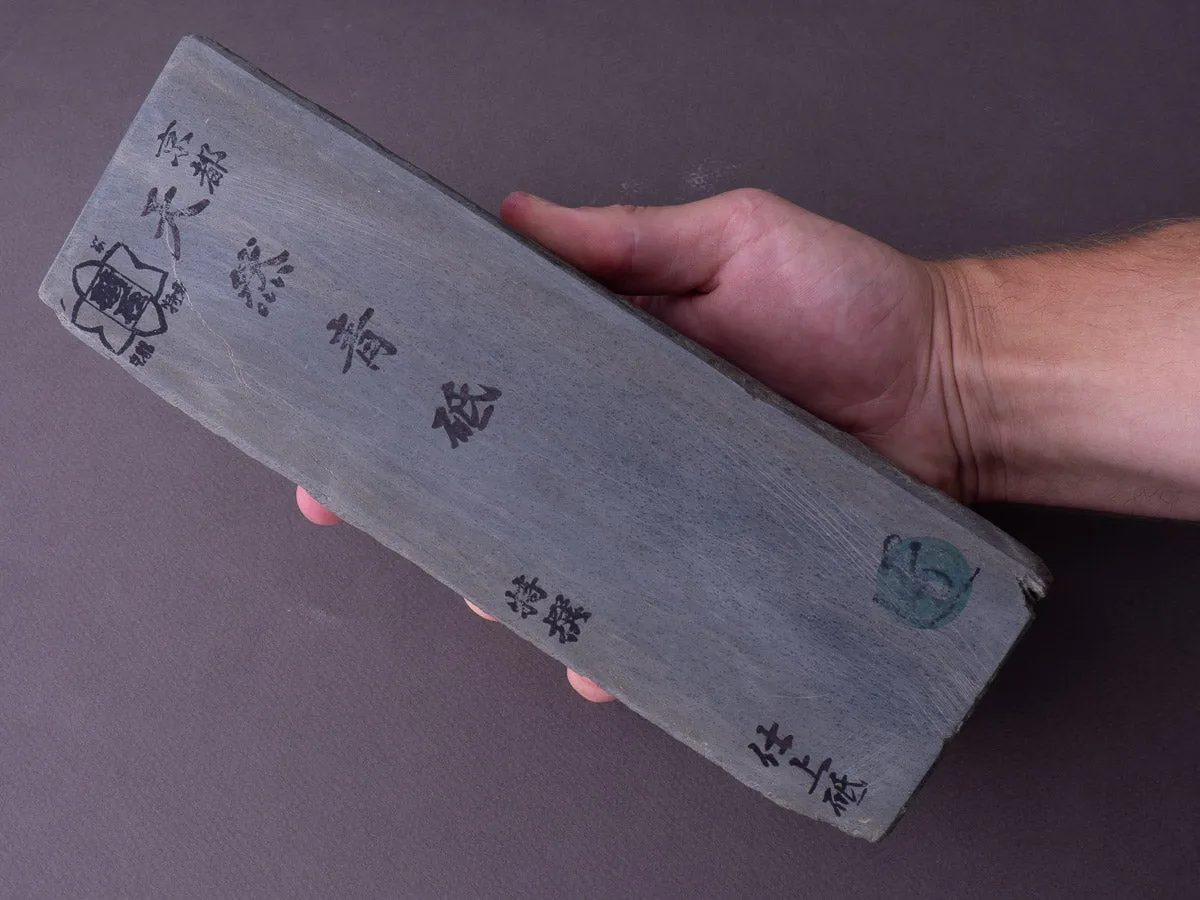 京都
天然青砥
特撰
仕上砥